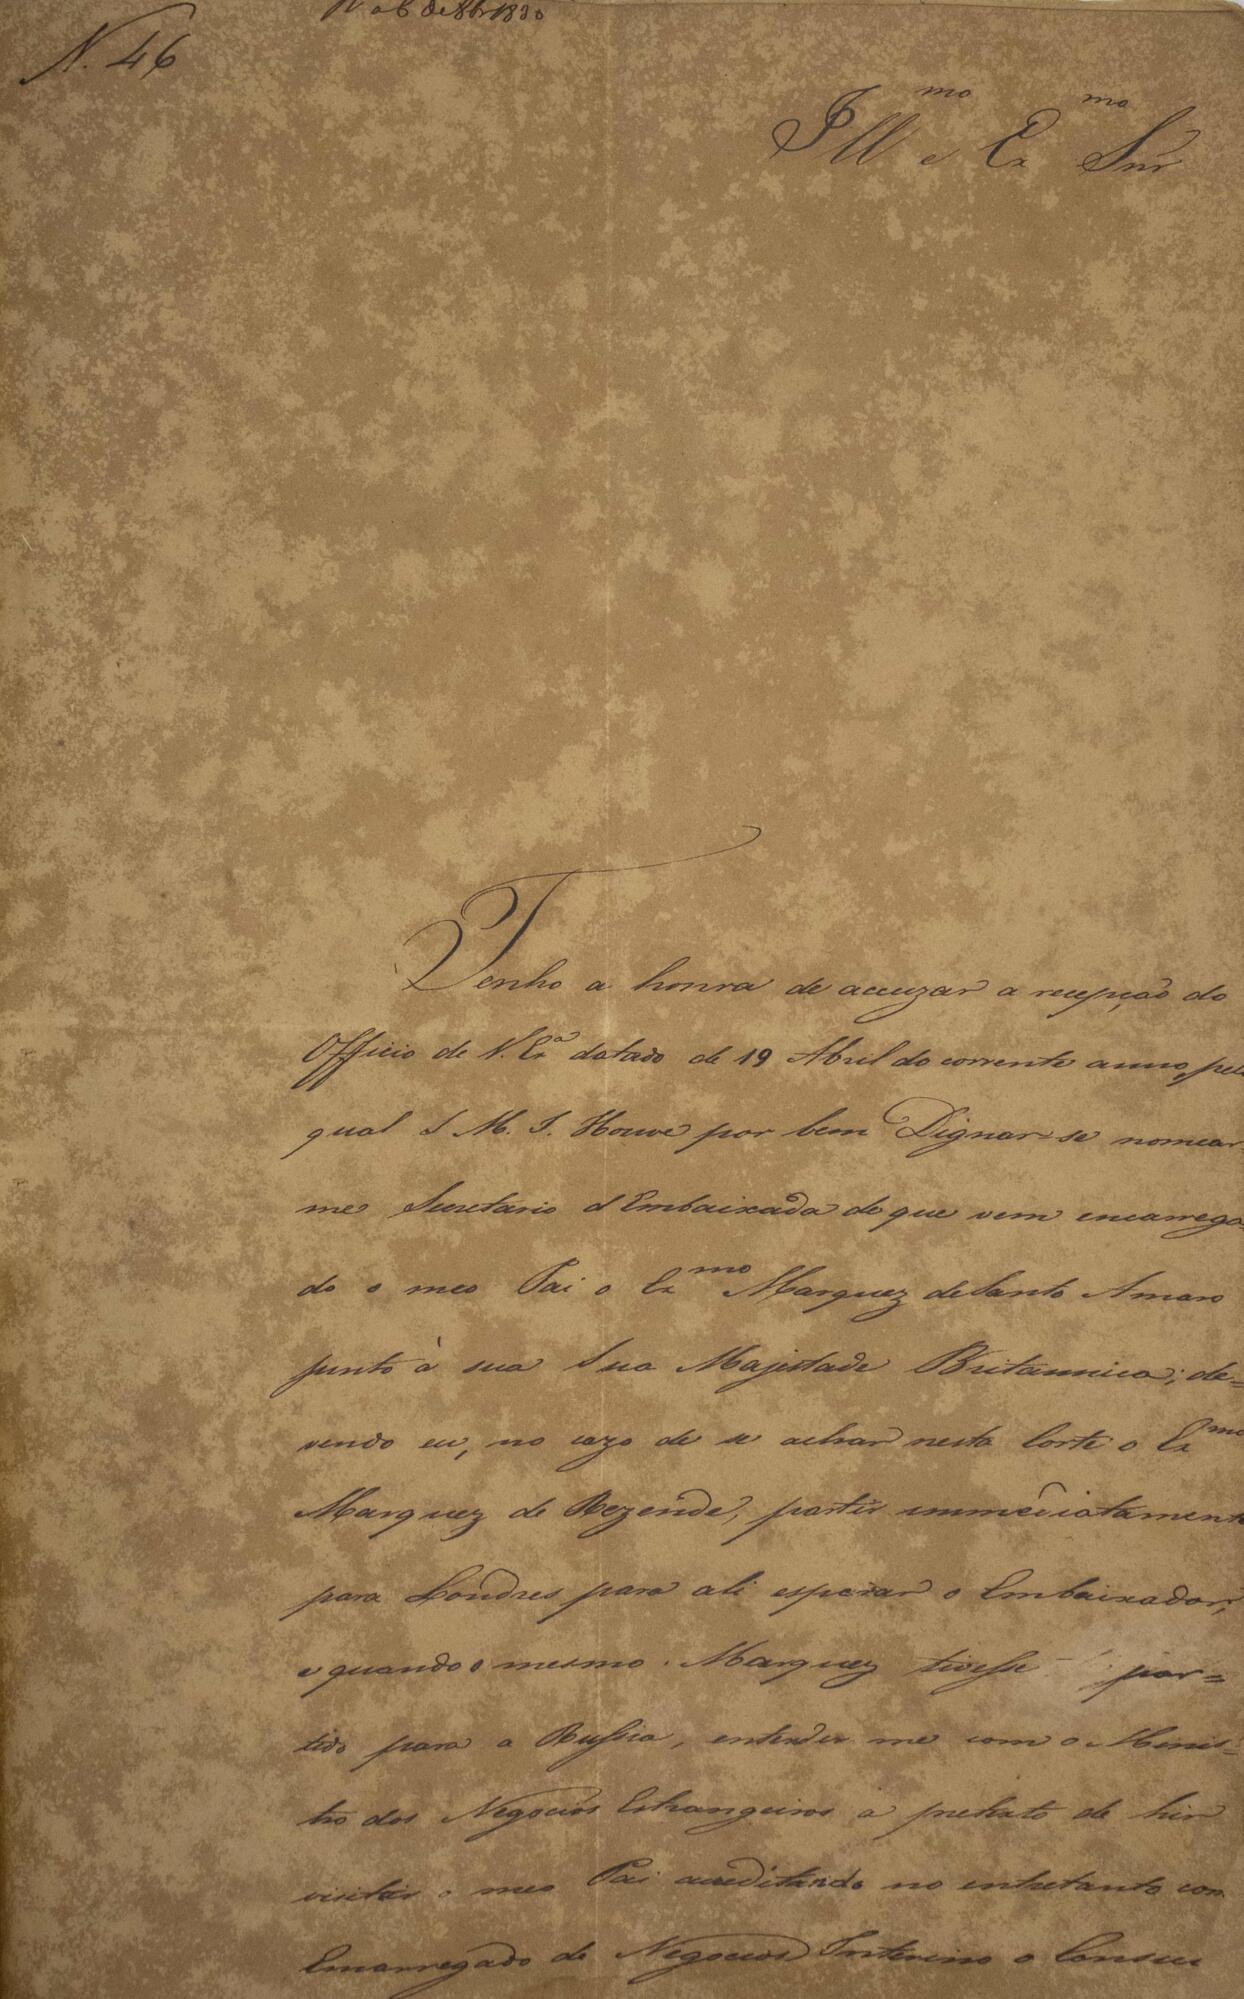 a 6 de 8br 1830
N. 46
Illmo e Exmo Snr
Tenho a honra de accuzar a recepção do
Officio de V. Exa datado de 19 Abril do corrente anno, pelo
qual S M. I. Houve por bem Dignar-se nomear
me Secretario d'Embaixada de que vem encarrega-
do o meo Pai o Exmo Marquez de Santo Amaro
junto à sua Sua Majestade Britannica; de=
vendo eu, no cazo de se achar nesta Corte o Exmo
Marquez de Rezende, partir immediatamente
para Londres para ali esperar o Embaixador,
e quando o mesmo Marquez tivesse par=
tido para a Russia, entender me com o Minis-
tro dos Negocios Estrangeiros a pretexto de hir
visitar o meo Pai acreditando no entretanto com
Emarregado de Negocios Interino o Consul